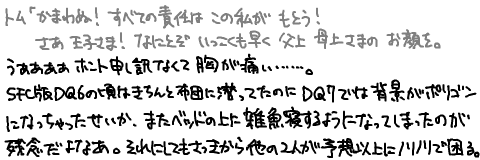 トム「かまわぬ！ すべての責任は この私が もとう！
さあ 王子さま！ なにとぞ いっこくも早く 父上 母上さまの お顔を。
うぁぁぁぁ ホント申し訳なくて 胸が痛い‥‥‥。
SFC版DQ6の頃はきちんと布団に潜ってたのに DQ7では背景がポリゴン
になっちゃったせいか、またベッドの上に雑魚寝するようになってしまったのが
残念だよなあ。それにしてもさっきから他の2人が予想以上にノリノリで困る。